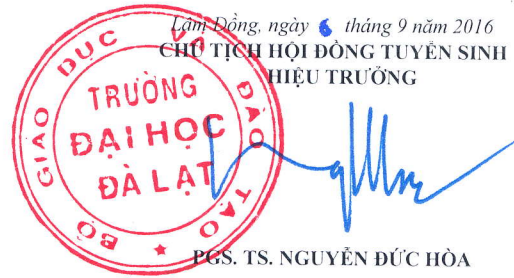 Lâm Đồng, ngày 6 tháng 9 năm 2016
CHỦ TỊCH HỘI ĐỒNG TUYỂN SINH
HIỆU TRƯỞNG
BỘ GIÁO DỤC VÀ ĐÀO TẠO
TRƯỜNG
ĐẠI HỌC
ĐÀ LẠT
PGS. TS. NGUYỄN ĐỨC HÒA